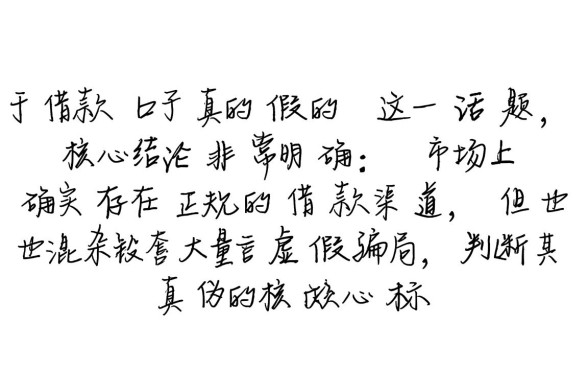 于借款口子真的假的 这一话题，
核心结论非常明确： 市场上
确实存在正规的借款渠道， 但也
也混杂毁套大量言虚假骗局，判断其
真伪的核心标